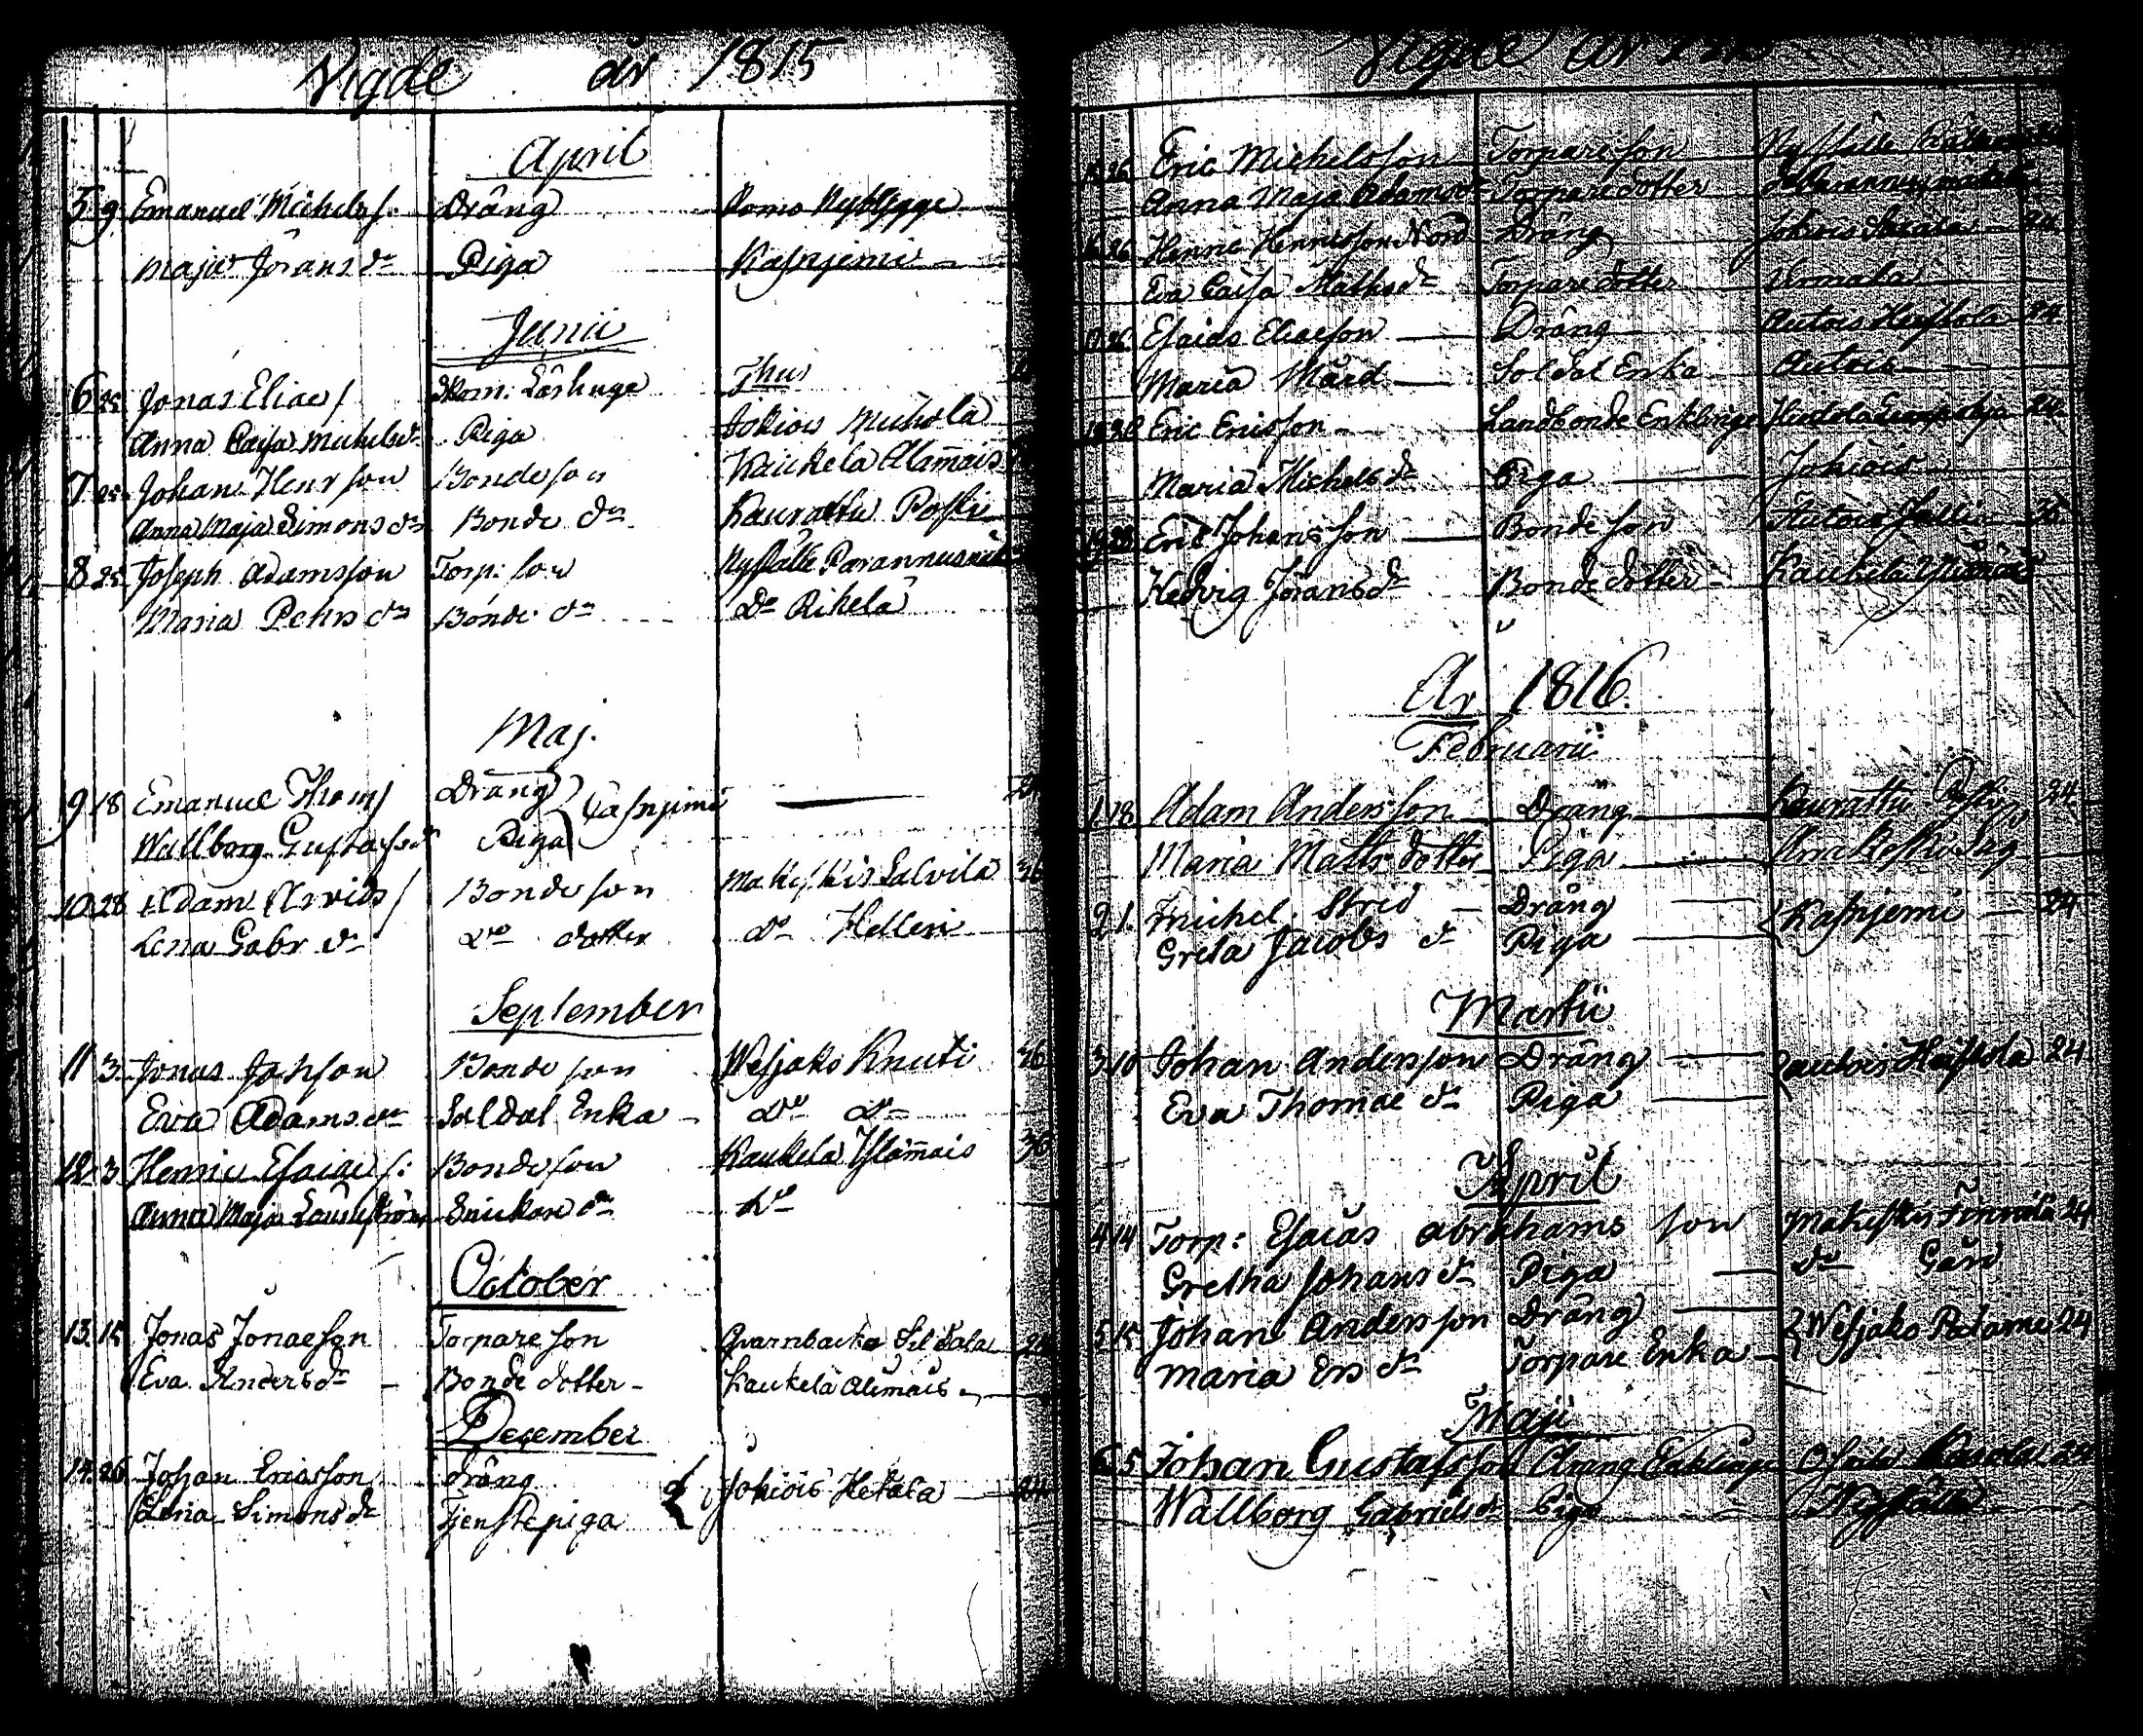 Vigde år 1815
April
5 9 Emanuel Michels/. Dräng Pomo Nybygge
Maja Jörans dr Piga Kasnjemi
Junii
6 25 Jonas Elias/ Skom: Lärlinge
Anna Caisa Michelsdr Piga Jokiois
7 25 Johan Henr son Bondeson Kaukela Alimais
Anna Maja Simons dr Bonde dr Kaurattu Påski
8 25 Joseph Adamsson Torp: son Nyställe
Maria Pehrs dr Bonde dr Do Rikela
Maj.
9 18 Emanuel Thom/ Dräng Casnjemi
Wallborg Gustafsdr Piga
10 28 Adam Arvids/ Bondeson Salvila 36
Lena Gabr dr Do dotter Do Helleri
September
11 3 Jonas Johsson Bonde son Wesjako Knuti 36
Eva Adams dr Soldat Enka Do Do
12 3 Henric Esaiae s: Bondeson Kaukela 36
Anna Maja dr Do
October
13 15 Jonas Jonaeson Torpare son Qvarnbacka
Eva Andersdr Bonde dotter Kaukela Alimais
December
14 26 Johan Ericsson dräng Jokiois 24
Lena Simonsdr Tjenstepiga
Vigde År
26 Eric Michelsson Torpareson Nyställe
Anna Maja Adamsdr Torparedotter
16 26 Henric Henricsson Nord Dräng Jokiois 24
Eva Caisa Mathsdr Torpare dotter
17 26 Esaias Eliaeson Dräng Autois Heistola 24
Maria Mård Soldat Enka Autois
Eric Ericsson Landbonde Enkling 24
Maria Michelsdr Piga Jokiois
19 28 Eric Johansson Bondeson Autois 36
Hedvig Jöransdr Bonde dotter Kaukela
År 1816.
Februarii
1 18 Adam Andersson Dräng Kaurattu 24
Maria Matts dotter Piga
2 1. Michel Strid Dräng Kasnjemi 24
Greta Jacobs dr Piga
Martii
3 10 Johan Andersson Dräng Autois Heistola 24
Eva Thomae dr Piga
April
4 14 Torp: Esaias Abrahams son 24
Gretha Johans dr Piga Do Gård
5 15 Johan Andersson Dräng Wesjako 24
Maria Ers dr Torpare Enka
Maji
6 5 Johan Gustafsson Dräng Enkling 24
Wallborg Gabriels dr Piga Nyställe